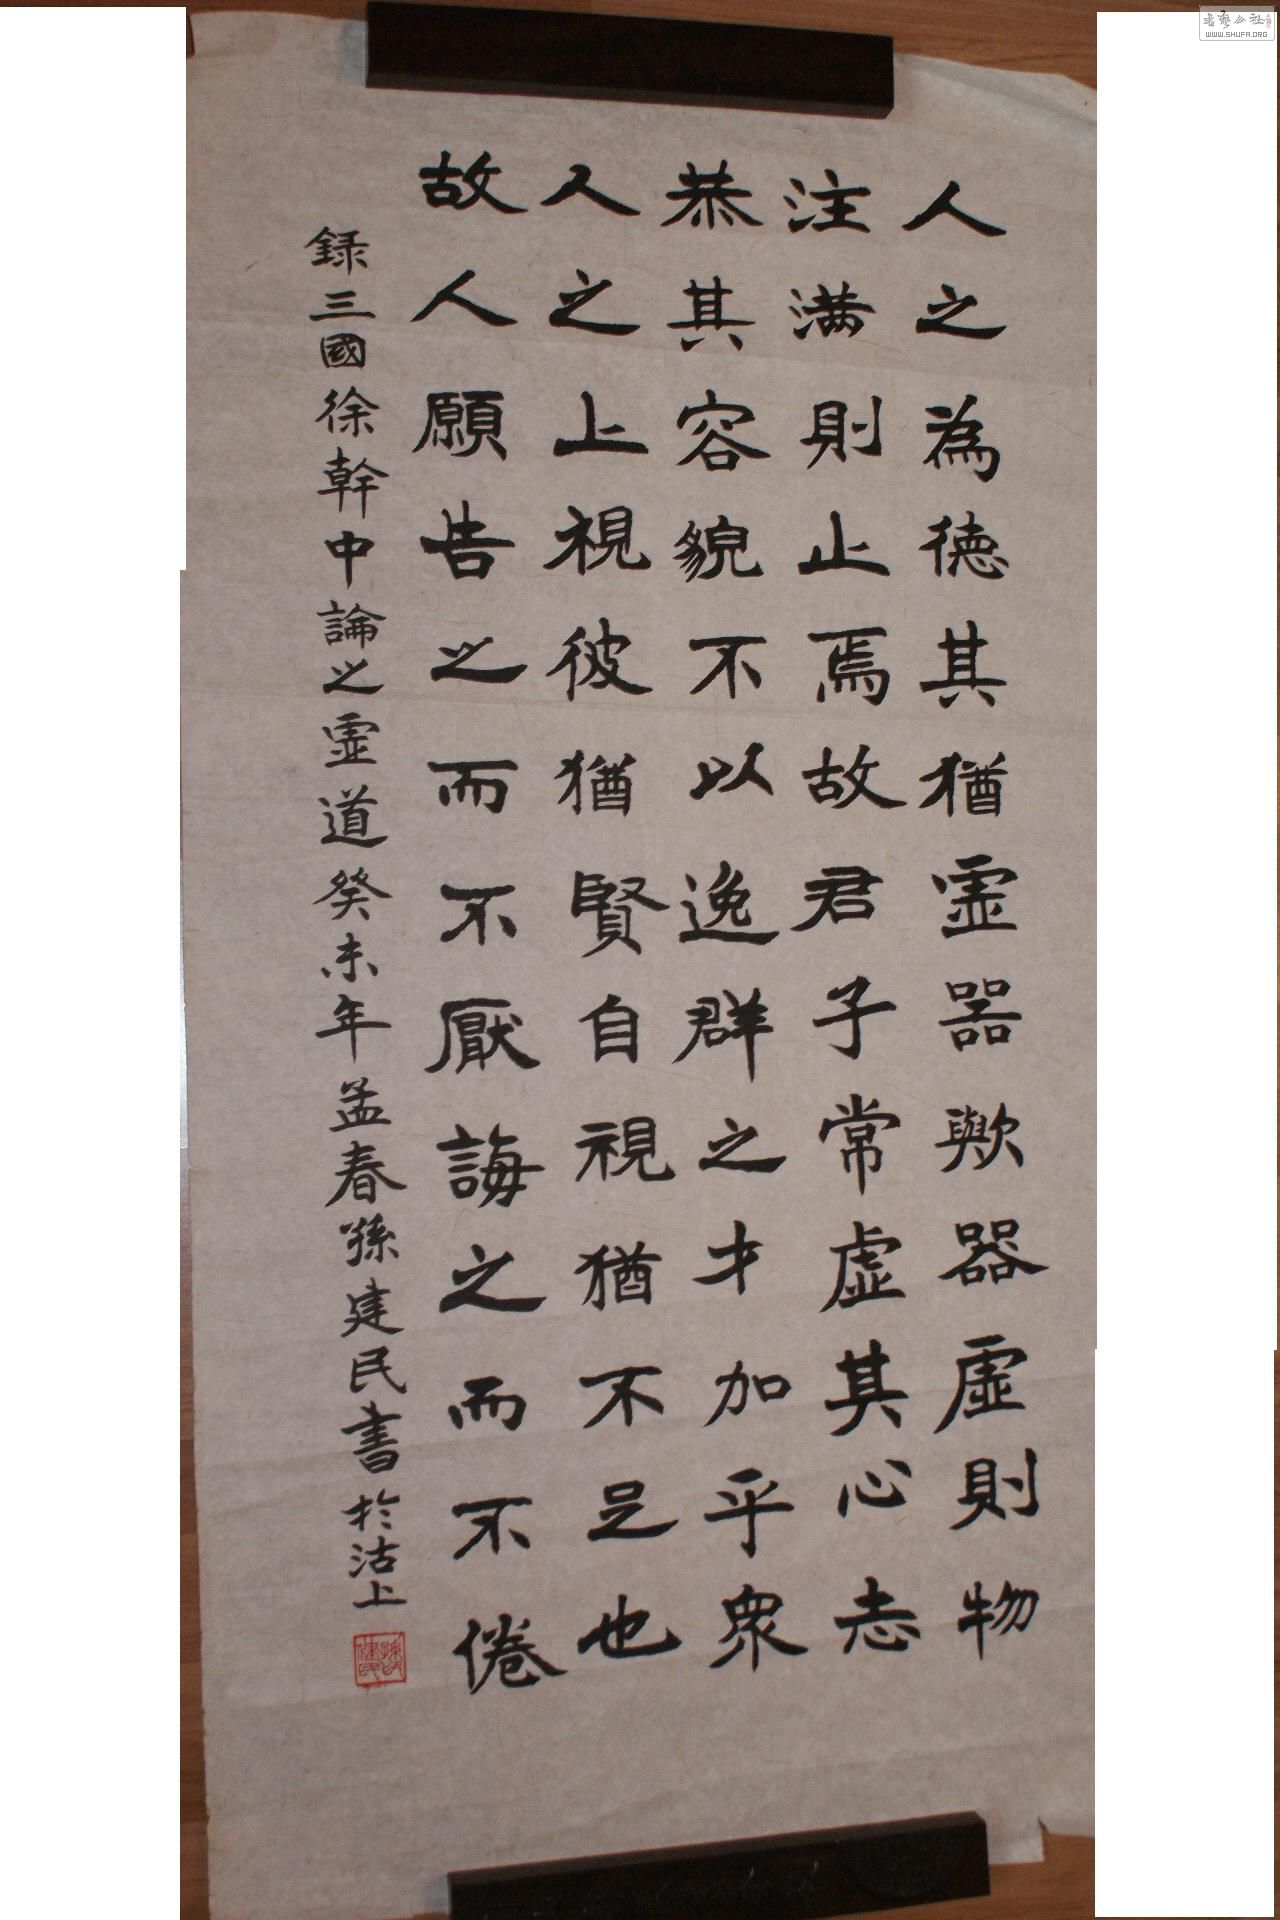 人之為德其猶虚器歟器虚則物
注满則止焉故君子常虚其心志
恭其容貌不以逸群之才加乎衆
人之上視彼猶賢自視猶不足也
故人願告之而不厭誨之而不倦
録三國徐幹中論之虚道癸未年孟春孫建民書於沽上
書藝公社
WWW.SHUFA.ORG